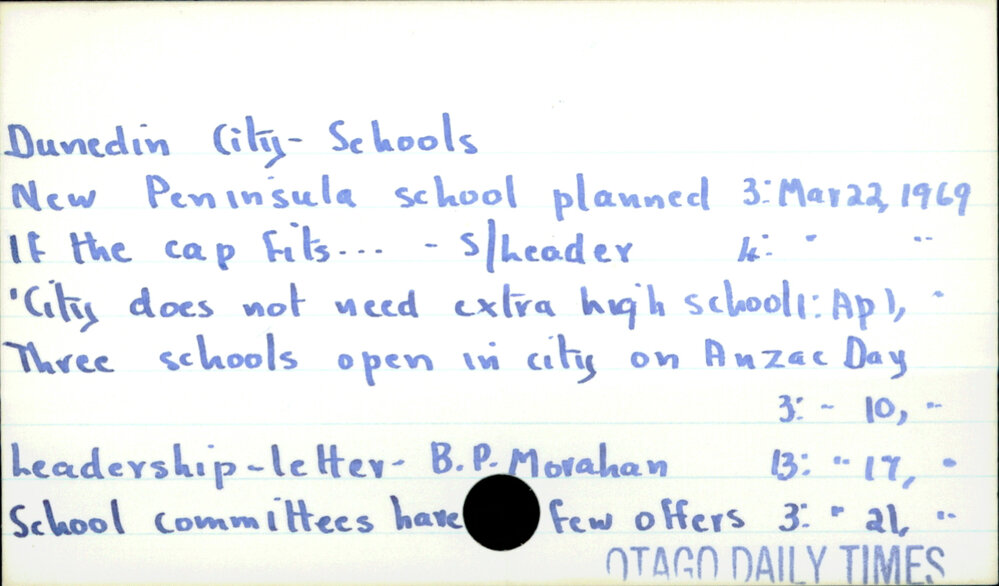 Dunedin City- Schools
New Peninsula school planned 3: Mar 22, 1969
If the cap fits... - S/header 4: " "
'City does not need extra high school 1: Ap 1, "
Three schools open in city on Anzac Day
3: " 10, "
Leadership-letter- B.P. Morahan 13: " 17, "
School committees have few offers 3: " 21, "
OTAGO DAILY TIMES